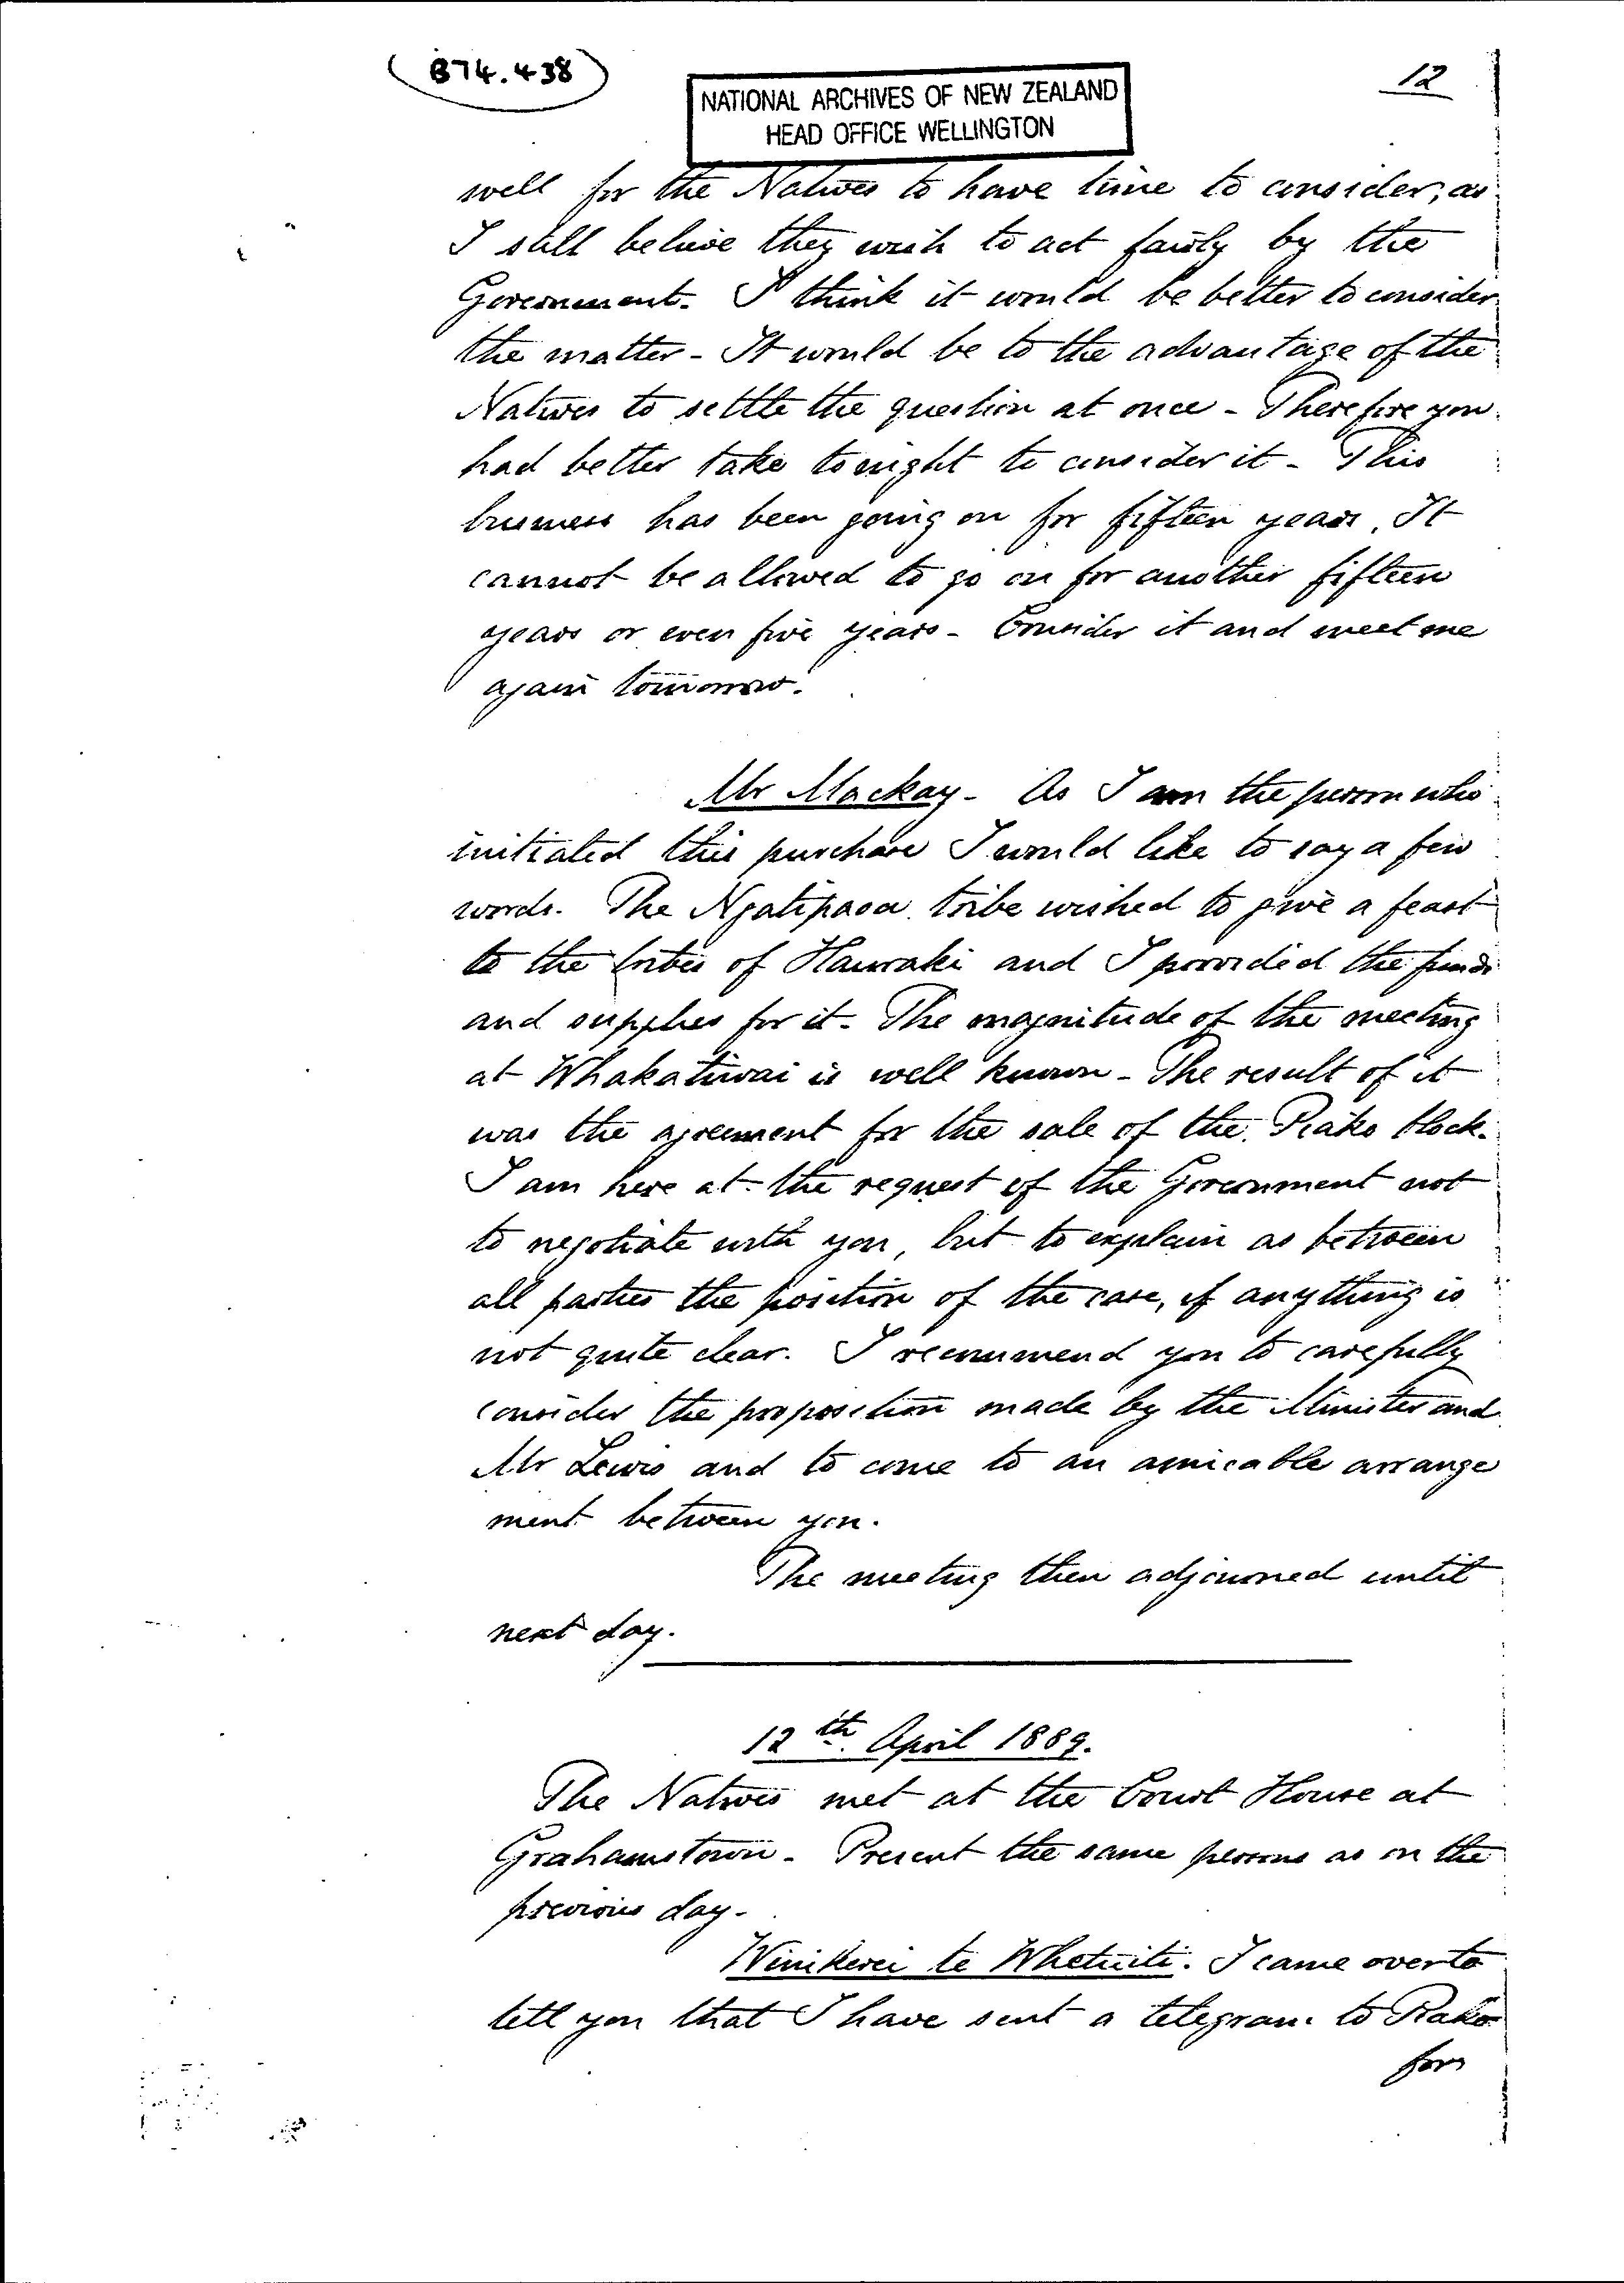 B74.438
12
NATIONAL ARCHIVES OF NEW ZEALAND
HEAD OFFICE WELLINGTON
well for the Natives to have time to consider, as
I still believe they wish to act fairly by the
Government. I think it would be better to consider
the matter - It would be to the advantage of the
Natives to settle the question at once - Therefore you
had better take tonight to consider it - This
business has been going on for fifteen years. It
cannot be allowed to go on for another fifteen
years or even five years - Consider it and meet me
again tomorrow.
Mr Mackay - As I am the person who
initiated this purchase I would like to say a few
words. The Ngatipaoa tribe wished to give a feast
to the tribes of Hauraki and I provided the funds
and supplies for it - The magnitude of the meeting
at Whakatiwai is well known - The result of it
was the agreement for the sale of the Piako block.
I am here at the request of the Government not
to negotiate with you, but to explain as between
all parties the position of the case, if anything is
not quite clear. I recommend you to carefully
consider the proposition made by the Minister and
Mr Lewis and to come to an amicable arrange
ment between you.
The meeting then adjourned until
next day.
12th April 1889.
The Natives met at the Court House at
Grahamstown - Present the same persons as on the
previous day -
te I came over to
tell you that I have sent a telegram to Piako
for